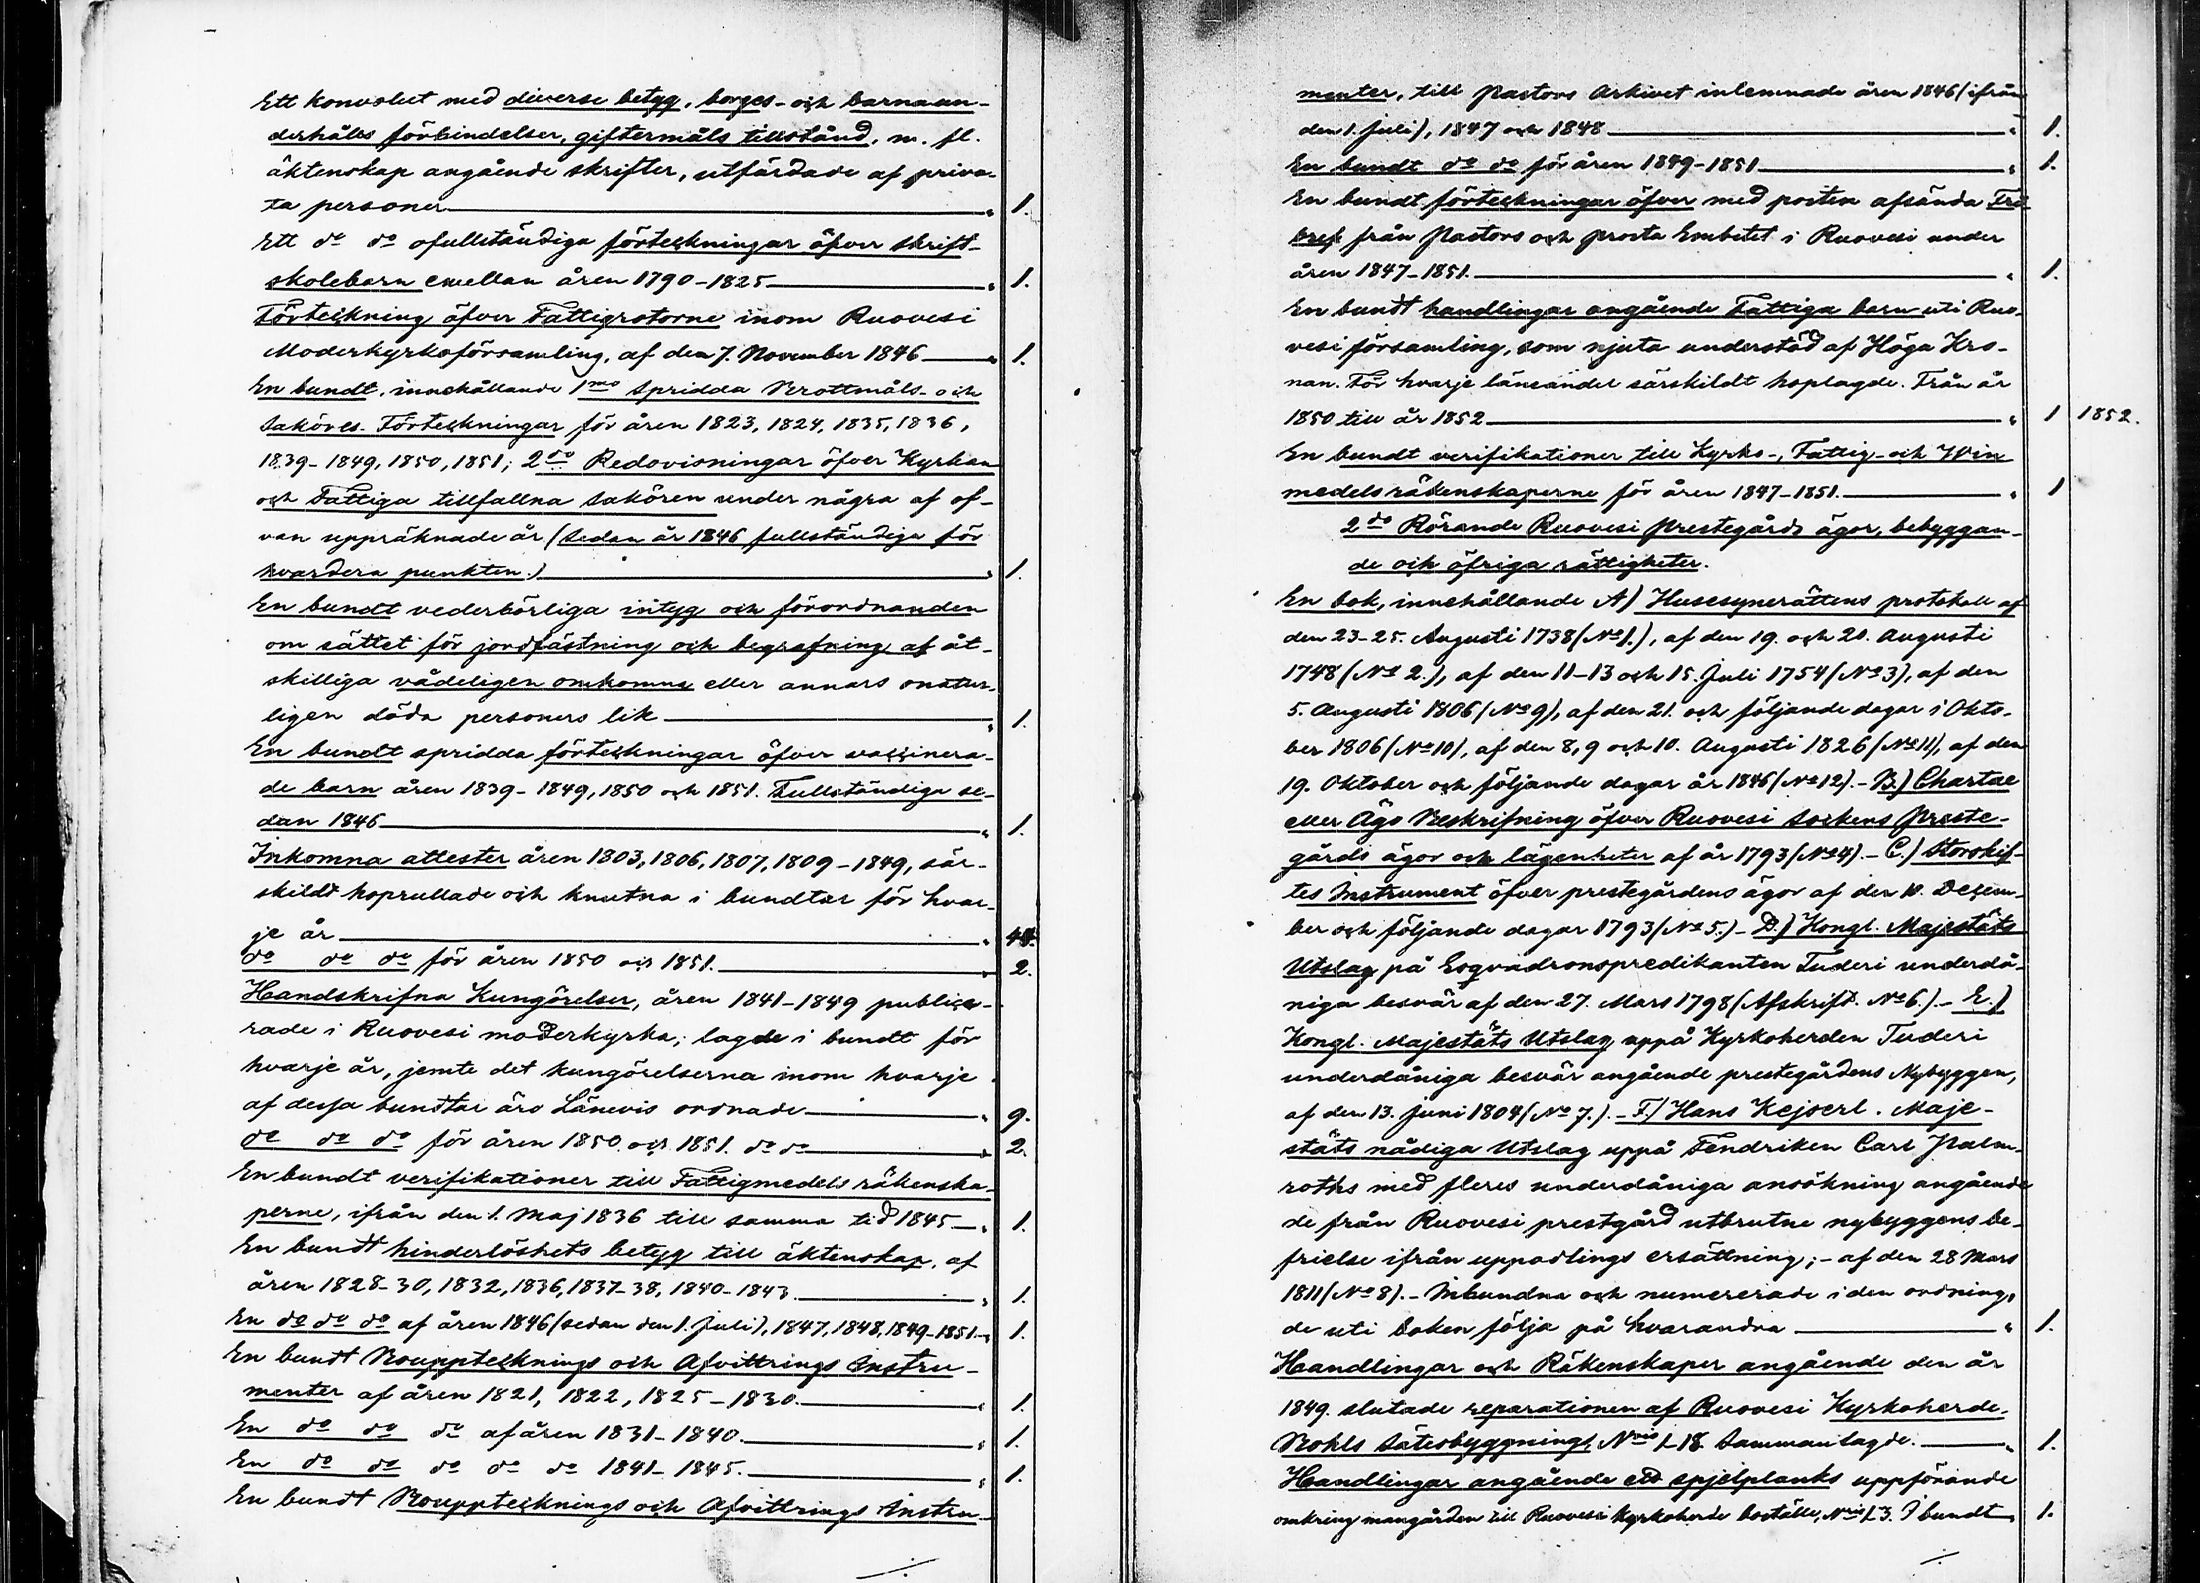 Ett konvolut med diverse betyg, borges- och barnaun-
derhålls förbindelser, giftermåls tillstånd, m. fl.
äktenskap angående skrifter, utfärdade af priva-
ta personer " 1.
Ett do do ofullständiga förteckningar öfver skrift-
skolebarn emellan åren 1790-1825 " 1.
Förteckning öfver Fattigrotorne inom Ruovesi
Moderkyrkoförsamling, af den 7. November 1846 " 1.
En bundt, innehållande 1mo spridda Brottmåls- och
Saköres-Förteckningar för åren 1823, 1824, 1835, 1836,
1839-1849, 1850, 1851; 2do Redovisningar öfver Kyrkan
och Fattiga tillfallna sakören under några af of-
van uppräknade år (sedan år 1846 fullständiga för
hvardera punkten.) " 1.
En bundt vederbörliga intyg och förordnanden
om sättet för jordfästning och begrafning af åt-
skilliga vådeligen omkomna eller annars onatur-
ligen döda personers lik " 1.
En bundt spridda förteckningar öfver vaccinera-
de barn åren 1839-1849, 1850 och 1851. Fullständiga se-
dan 1846 " 1.
Inkomna attester åren 1803, 1806, 1807, 1809-1849, sär-
skildt hoprullade och knutna i bundtar för hvar-
je år " 44.
do do do för åren 1850 och 1851. " 2.
Handskrifna Kungörelser, åren 1841-1849 publice-
rade i Ruovesi moderkyrka, lagde i bundt för
hvarje år, jemte det kungörelserna inom hvarje
af dessa bundtar äro Länevis ordnade " 9.
do do do för åren 1850 och 1851. do do " 2.
En bundt verifikationer till Fattigmedels räkenska-
perne, ifrån den 1. Maj 1836 till samma tid 1845 " 1.
En bundt hinderlöshets betyg till äktenskap, af
åren 1828-30, 1832, 1836, 1837-38, 1840-1843. " 1.
En do do do af åren 1846 (sedan den 1. Juli), 1847, 1848, 1849-1851 " 1.
En bundt Bouppteknings och Afvittrings Instru-
menter af åren 1821, 1822, 1825-1830. " 1.
En do do do af åren 1831-1840. " 1.
En do do do do do 1841-1845. " 1.
En bundt Bouppteknings och Afvittrings Instru-
./.
menter, till Pastors Arkivet inlemnade åren 1846 (ifrån
den 1. Juli), 1847 och 1848 " 1.
En bundt do do för åren 1849-1851 " 1.
En bundt förteckningar öfver med posten afsända Fri-
bref från Pastors och Prosta Embetet i Ruovesi under
åren 1847-1851. " 1.
En bundt handlingar angående Fattiga barn uti Ruo-
vesi församling, som njuta understöd af Höga Kro-
nan. För hvarje läneandel särskildt hoplagde. Från år
1850 till år 1852 " 1 1852.
En bundt verifikationer till Kyrko-, Fattig- och Win
medelsräkenskaperne för åren 1847-1851. " 1
2do Rörande Ruovesi Prestegårds ägor, bebyggan-
de och öfriga rättigheter.
En bok, innehållande A) Husesynerättens protokoll af
den 23-25. Augusti 1738 (No 1.), af den 19. och 20. Augusti
1748 (No 2.), af den 11-13 och 15. Juli 1754 (No 3), af den
5. Augusti 1806 (No 9), af den 21. och följande dagar i Okto-
ber 1806 (No 10), af den 8, 9 och 10. Augusti 1826 (No 11), af den
19. Oktober och följande dagar år 1846 (No 12).- B.) Chartae
eller Ägo Beskrifning öfver Ruovesi Sockens Preste-
gårds ägor och lägenheter af år 1793 (No 4).- C.) Storskif-
tes Instrument öfver prestegårdens ägor af den 10. Decem-
ber och följande dagar 1793 (No 5.)- D.) Kongl. Majestäts
Utslag på Esqvadronspredikanten Tuderi underdå-
niga besvär af den 27. Mars 1798 (Afskrift. No 6.).- E.)
Kongl. Majestäts Utslag uppå Kyrkoherden Tuderi
underdåniga besvär angående prestegårdens Nybyggen,
af den 13. Juni 1804 (No 7.).- F.) Hans Kejserl. Maje-
stäts nådiga Utslag uppå Fendriken Carl Palm-
roths med fleres underdåniga ansökning angående
de från Ruovesi prestgård utbrutne nybyggens be-
frielse ifrån uppodlings ersättning;- af den 28 Mars
1811 (No 8).- Inbundna och numererade i den ordning,
de uti boken följa på hvarandra " 1.
Handlingar och Räkenskaper angående den år
1849. slutade reparationen af Ruovesi Kyrkoherde-
Bohls Sätesbyggning, Nris 1-18. Sammanlagde. " 1.
Handlingar angående ett spjelplanks uppförande
omkring mangården till Ruovesi Kyrkoherde boställe, Nris 1-3. I bundt " 1.
./.